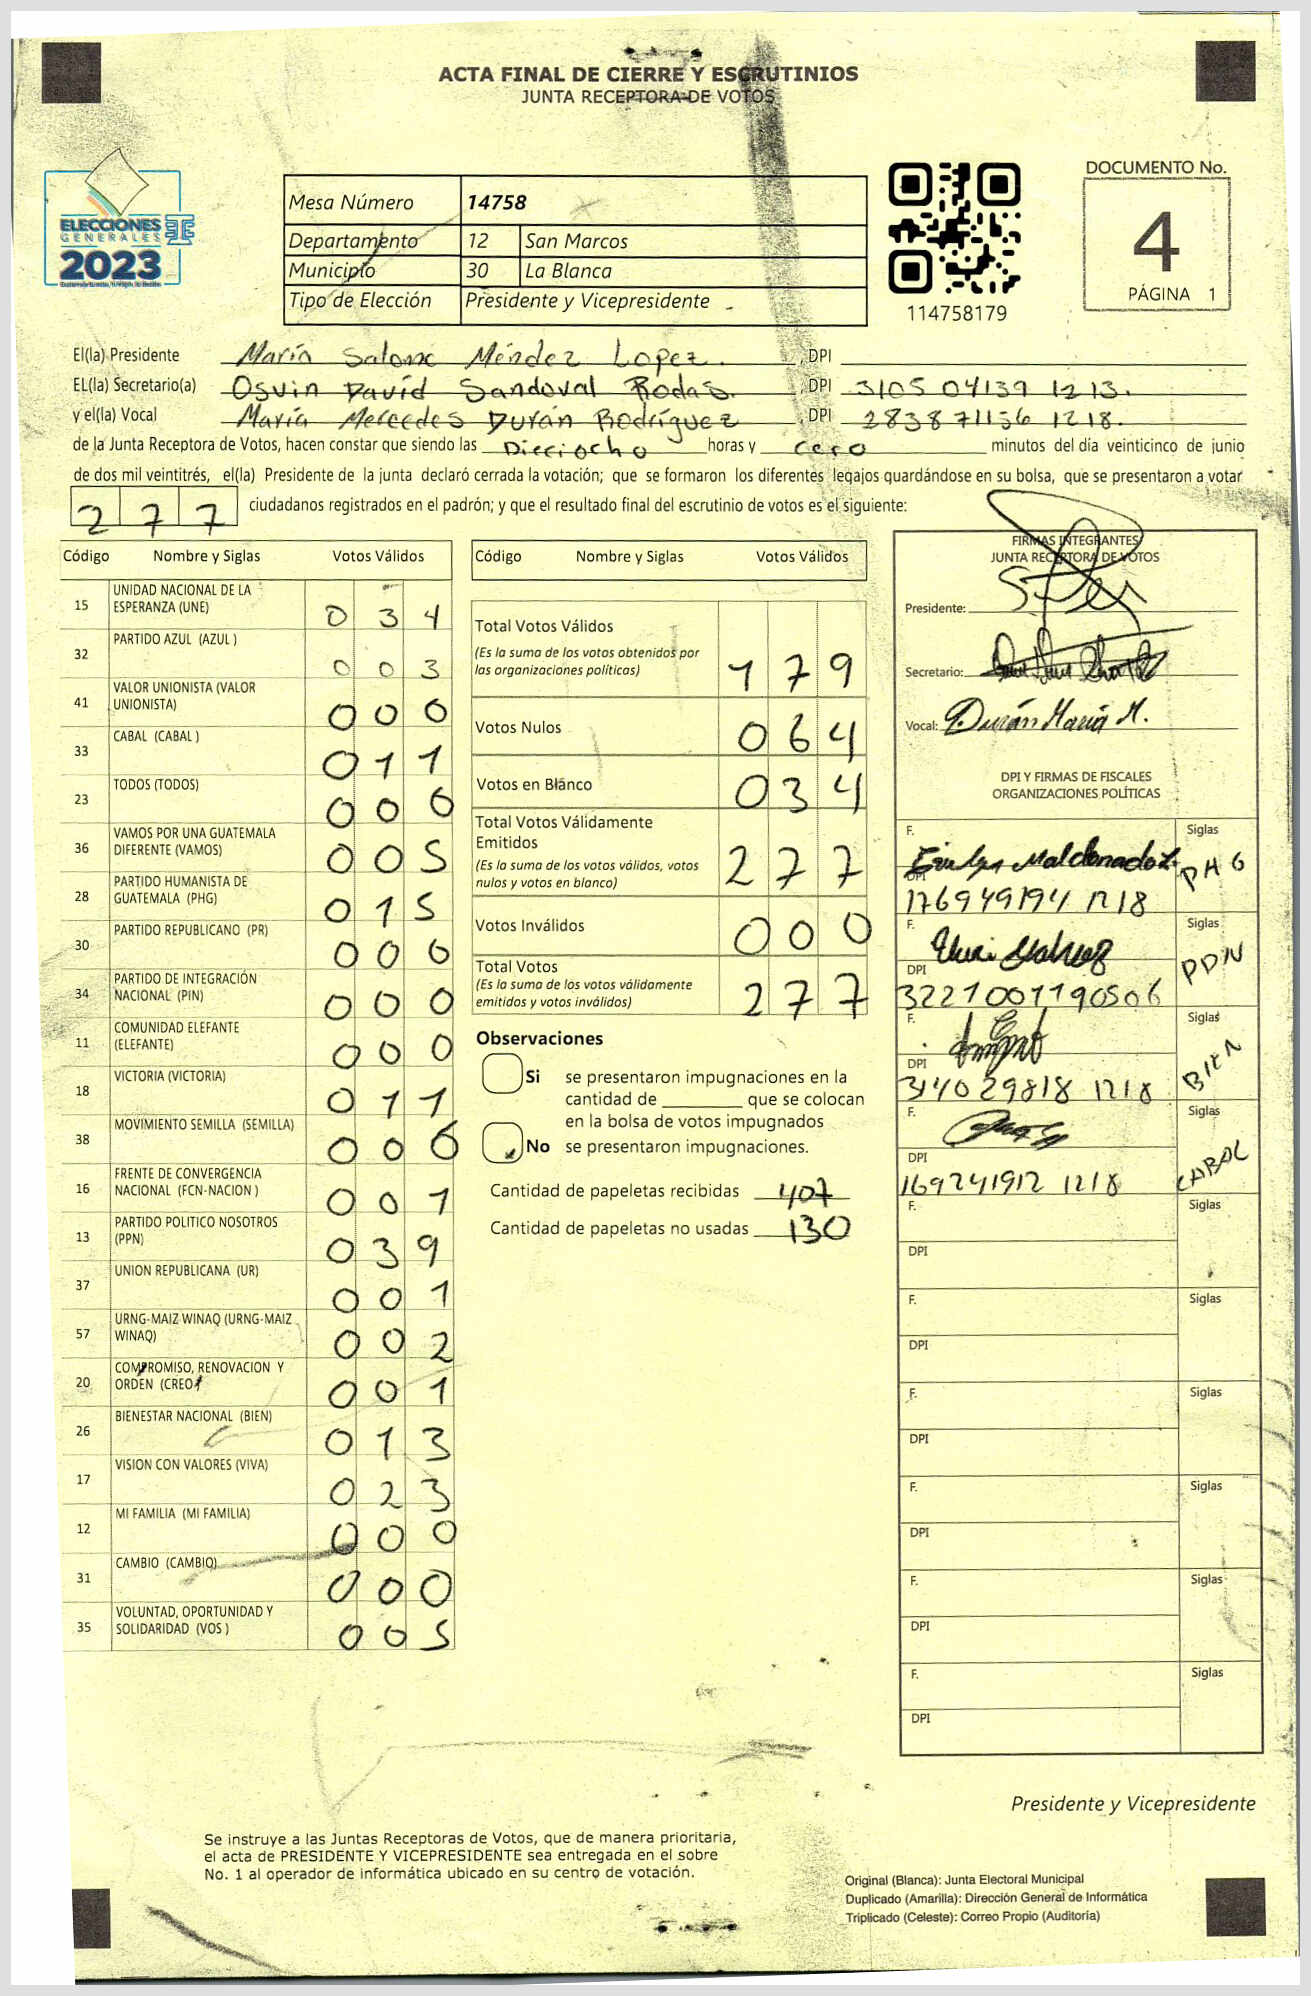 ACTA FINAL DE CIERRE Y ESCRUTINIOS
JUNTA RECEPTORA DE VOTOS
ELECCIONES
GENERALES
2023
Mesa Número 14758
Departamento 12 San Marcos
Municipio 30 La Blanca
Tipo de Elección Presidente y Vicepresidente
114758179
DOCUMENTO No.
4
PÁGINA 1
El(la) Presidente María Salome Méndez Lopez. , DPI
EL(la) Secretario(a) Osvin David Sandoval Rodas. , DPI 3105 04139 1213.
y el(la) Vocal María Mercedes Durán Rodríguez , DPI 283871156 1218.
de la Junta Receptora de Votos, hacen constar que siendo las Dieciocho horas y cero minutos del día veinticinco de junio
de dos mil veintitrés, el(la) Presidente de la junta declaró cerrada la votación; que se formaron los diferentes legajos guardándose en su bolsa, que se presentaron a votar
277 ciudadanos registrados en el padrón; y que el resultado final del escrutinio de votos es el siguiente:
Código Nombre y Siglas Votos Válidos
15 UNIDAD NACIONAL DE LA ESPERANZA (UNE) 034
32 PARTIDO AZUL (AZUL ) 003
41 VALOR UNIONISTA (VALOR UNIONISTA) 000
33 CABAL (CABAL ) 011
23 TODOS (TODOS) 006
36 VAMOS POR UNA GUATEMALA DIFERENTE (VAMOS) 005
28 PARTIDO HUMANISTA DE GUATEMALA (PHG) 015
30 PARTIDO REPUBLICANO (PR) 000
34 PARTIDO DE INTEGRACIÓN NACIONAL (PIN) 000
11 COMUNIDAD ELEFANTE (ELEFANTE) 000
18 VICTORIA (VICTORIA) 011
38 MOVIMIENTO SEMILLA (SEMILLA) 006
16 FRENTE DE CONVERGENCIA NACIONAL (FCN-NACION ) 001
13 PARTIDO POLITICO NOSOTROS (PPN) 039
37 UNION REPUBLICANA (UR) 001
57 URNG-MAIZ WINAQ (URNG-MAIZ WINAQ) 002
20 COMPROMISO, RENOVACION Y ORDEN (CREO) 001
26 BIENESTAR NACIONAL (BIEN) 013
17 VISION CON VALORES (VIVA) 023
12 MI FAMILIA (MI FAMILIA) 000
31 CAMBIO (CAMBIO) 000
35 VOLUNTAD, OPORTUNIDAD Y SOLIDARIDAD (VOS ) 005
Código Nombre y Siglas Votos Válidos
Total Votos Válidos
(Es la suma de los votos obtenidos por
las organizaciones políticas) 179
Votos Nulos 064
Votos en Blanco 034
Total Votos Válidamente
Emitidos
(Es la suma de los votos válidos, votos
nulos y votos en blanco) 277
Votos Inválidos 000
Total Votos
(Es la suma de los votos válidamente
emitidos y votos inválidos) 277
Observaciones
Si se presentaron impugnaciones en la
cantidad de ________ que se colocan
en la bolsa de votos impugnados
No se presentaron impugnaciones.
Cantidad de papeletas recibidas 407
Cantidad de papeletas no usadas 130
FIRMAS INTEGRANTES
JUNTA RECEPTORA DE VOTOS
Presidente:
Secretario:
Vocal: Durán María M.
DPI Y FIRMAS DE FISCALES
ORGANIZACIONES POLÍTICAS
F. Maldonado Siglas PHG
DPI 176949194 1218
F. Siglas PDN
DPI 3221001190506
F. Siglas BIEN
DPI 314029818 1218
F. Siglas CABAL
DPI 169241912 1218
F. Siglas
DPI
F. Siglas
DPI
F. Siglas
DPI
F. Siglas
DPI
F. Siglas
DPI
F. Siglas
DPI
Presidente y Vicepresidente
Se instruye a las Juntas Receptoras de Votos, que de manera prioritaria,
el acta de PRESIDENTE Y VICEPRESIDENTE sea entregada en el sobre
No. 1 al operador de informática ubicado en su centro de votación.
Original (Blanca): Junta Electoral Municipal
Duplicado (Amarilla): Dirección General de Informática
Triplicado (Celeste): Correo Propio (Auditoría)